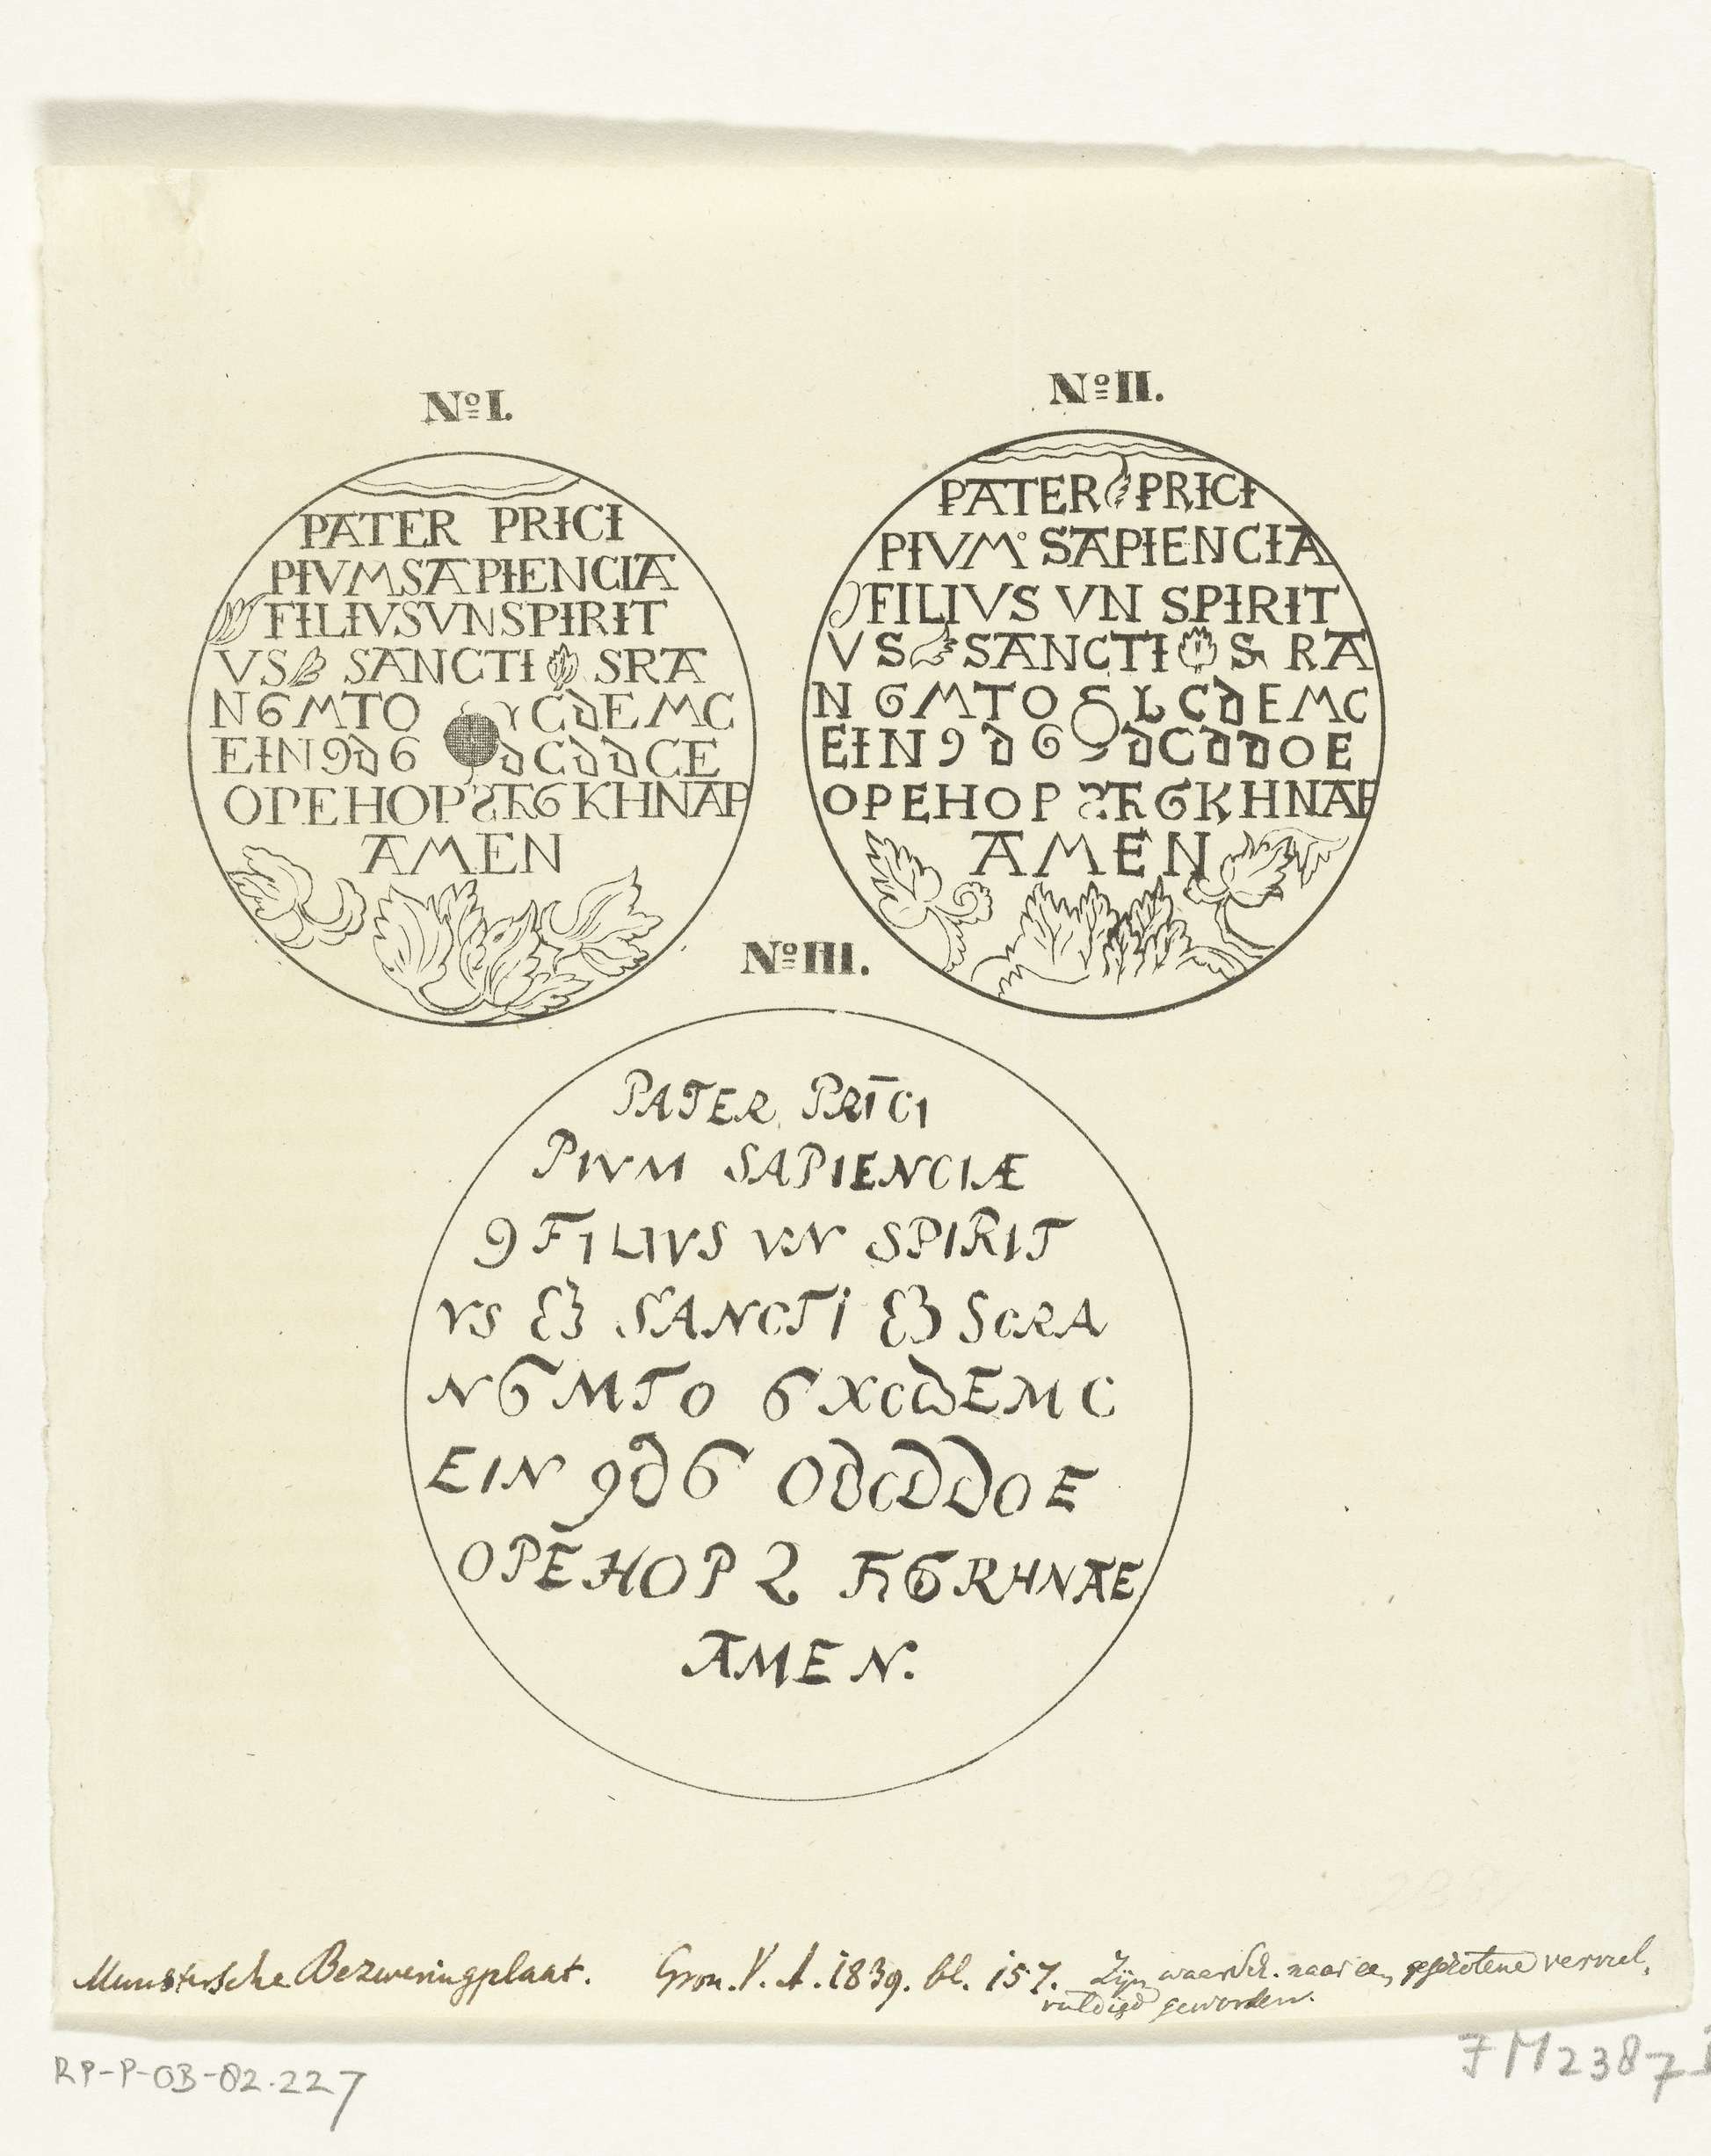 Nº I.
PATER PRICI
PIVMSAPIENCIA
FILIVSVNSPIRIT
VS SANCTI SRA
NGMTO CdEMC
EIN9d6 dCddCE
OPEHOP KHNAP
AMEN
Nº II.
PATER PRICI
PIVM° SAPIENCIA
FILIVS VN SPIRIT
VS SANCTI S RA
N GMTO CdEMC
EIN9d6 dCddOE
OPEHOP KHNAE
AMEN
Nº III.
PATER PRĪCI
PIVM SAPIENCIÆ
9 FILIVS VN SPIRIT
VS SANCTI SCRA
N6MTO 6XCdEMC
EIN 9d6 OdCddOE
OPĒHOP2 RHNAE
AMEN.
Munstersche Bezweringplaat. Gron. V. A. 1839. bl. 157. Zijn waarsch. naar een gegotene verveel,
vuldigd geworden.
RP-P-OB-82.227
FM2387